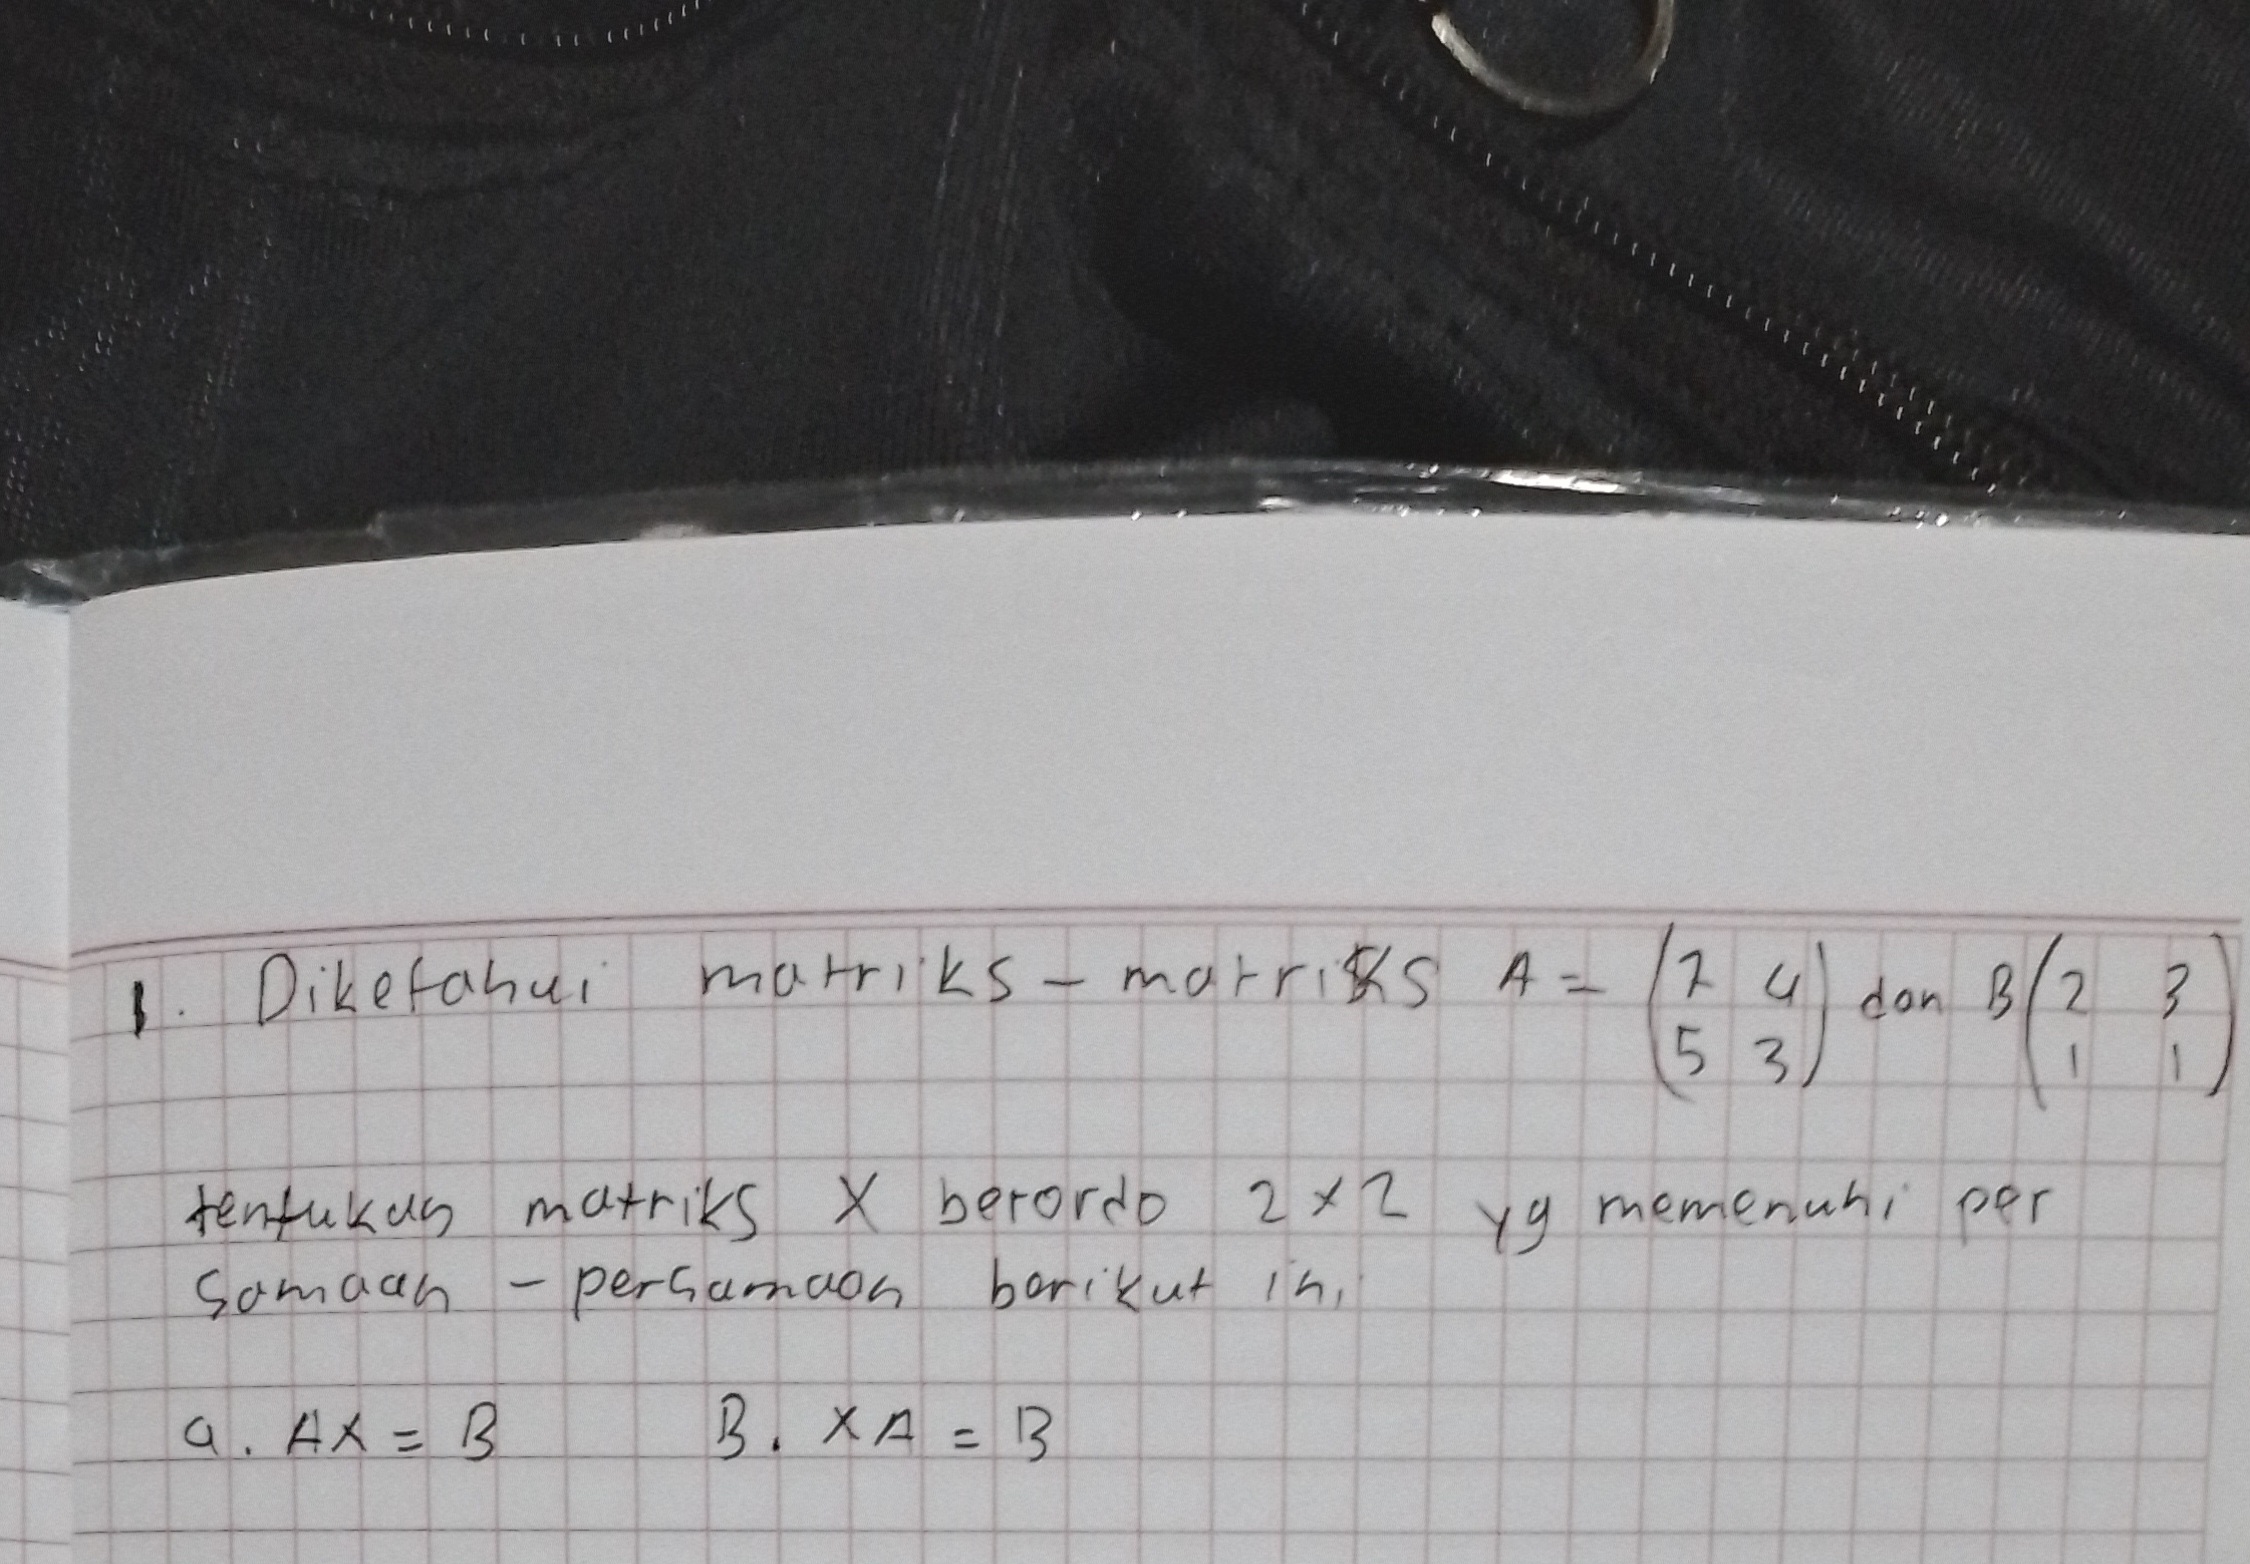 1. Diketahui matriks - matriks A = (7 4) dan B(2 3)
(5 3) (1 1)
tentukan matriks X berordo 2 x 2 yg memenuhi per
samaan - persamaan berikut ini
a. AX = B B. XA = B